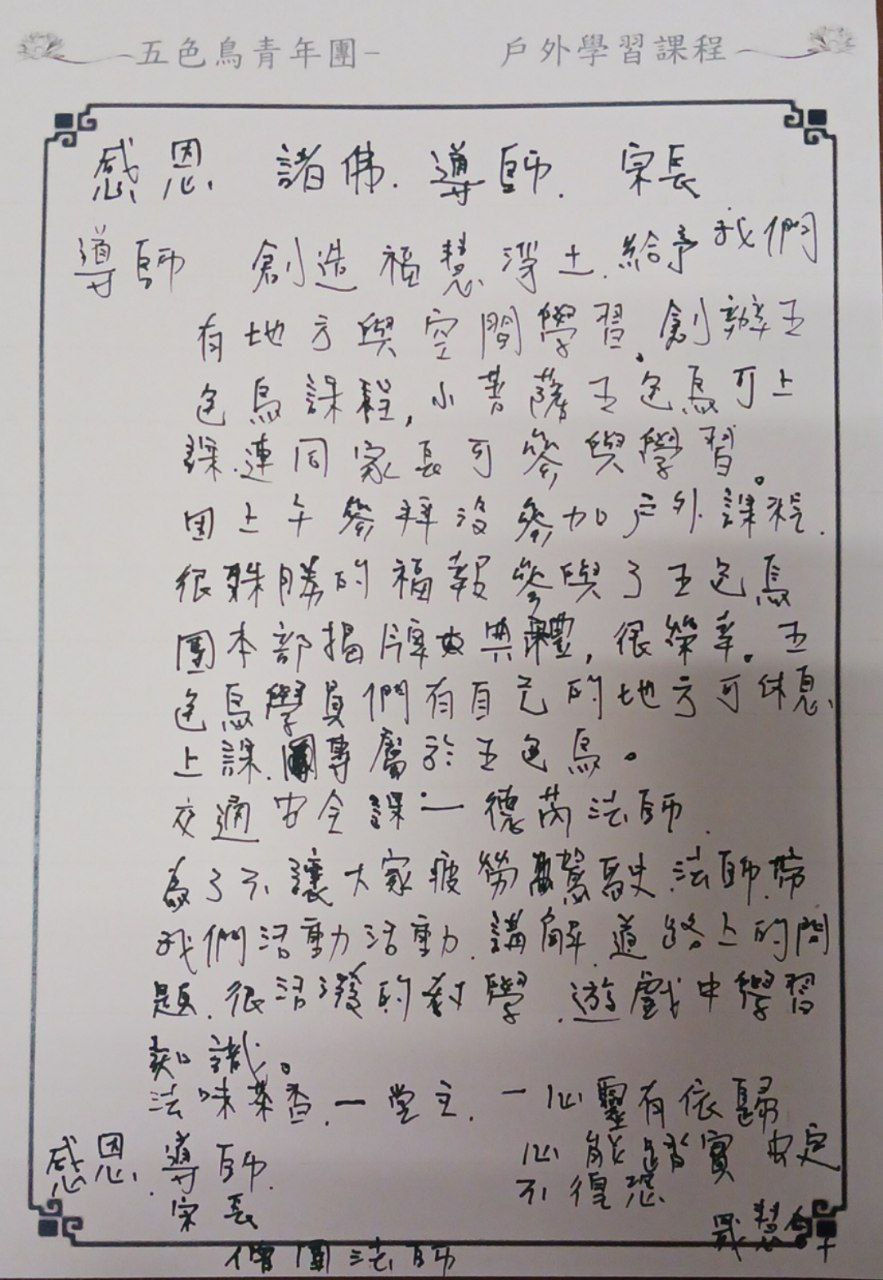 五色鳥青年團- 戶外學習課程
感恩 諸佛、導師、宗長
導師 創造福慧淨土、給予我們
有地方與空間學習。創辦五
色鳥課程,小菩薩五色鳥可上
課、連同家長可參與學習。
因上午參拜沒參加戶外課程、
很殊勝的福報參與了五色鳥
團本部揭牌典禮,很榮幸。五
色鳥學員們有自己的地方可休息、
上課、專屬於五色鳥。
交通安全課:一德芮法師、
為了不讓大家疲勞駕駛、法師帶
我們活動活動、講解、道路上的問
題、很活潑的教學、遊戲中學習
知識。
法味茶香、一堂主、一心靈有依歸
心能踏實 安定
不徨恐
感恩、導師、
宗長
僧團法師